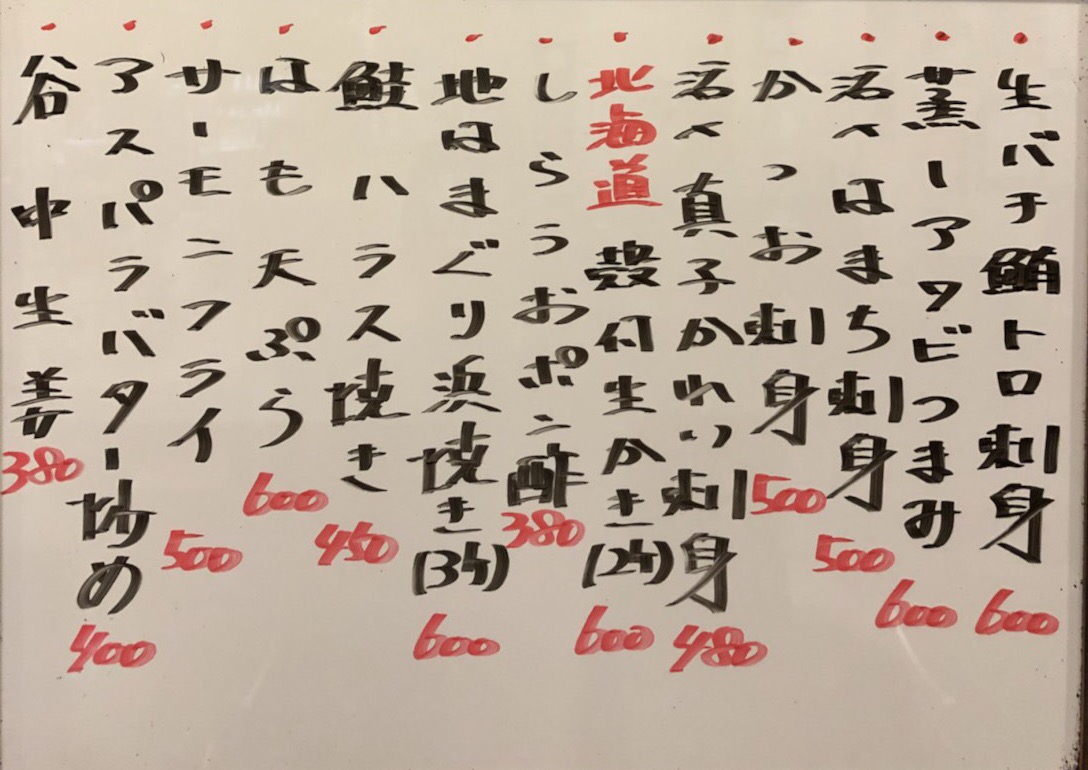 ・生バチ鮪トロ刺身 600
・蒸しアワビつまみ 600
・活〆はまち刺身 500
・かつお刺身 500
・活〆真子かれい刺身 480
・北海道 殻付生かき(2ケ) 600
・しらうおポン酢 380
・地はまぐり浜焼き(3ケ) 600
・鮭ハラス焼き 450
・はも天ぷら 600
・サーモンフライ 500
・アスパラバター炒め 400
・谷中生姜 380